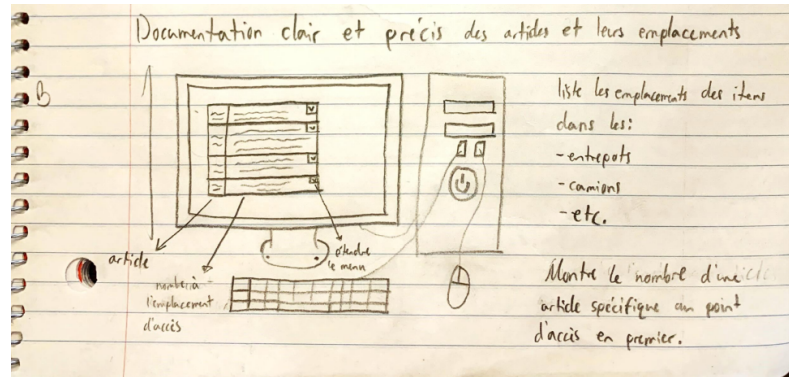 Documentation clair et précis des articles et leurs emplacements
B
liste les emplacements des items
dans les:
- entrepots
- camions
- etc.
article
étendre
le menu
nombre à
l'emplacement
d'accès
Montre le nombre d'une
article spécifique au point
d'accès en premier.